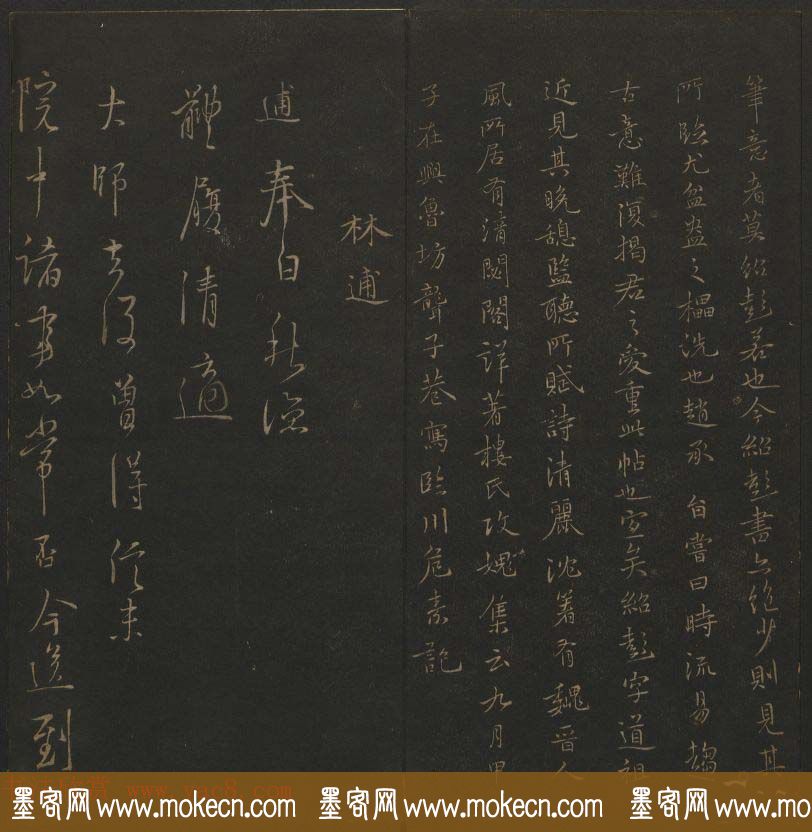 筆意者莫紹彭若也今紹彭書亦絶少則見其
所臨尤
古意難
君之愛重此帖也宜矣紹彭字道祖
近見其晚憩監聽所賦詩清麗沈著有魏晉人
風所居有清閟閣詳著樓氏攻媿集云九月甲
子在興魯坊聾子巷寓臨川危素記
林逋
逋奉白秋涼
體履清適
大師去後曾得信未
院中諸事如常否今送到
墨客网 www.mokecn.com 墨客网 www.mokecn.com 墨客网
www.yac8.com